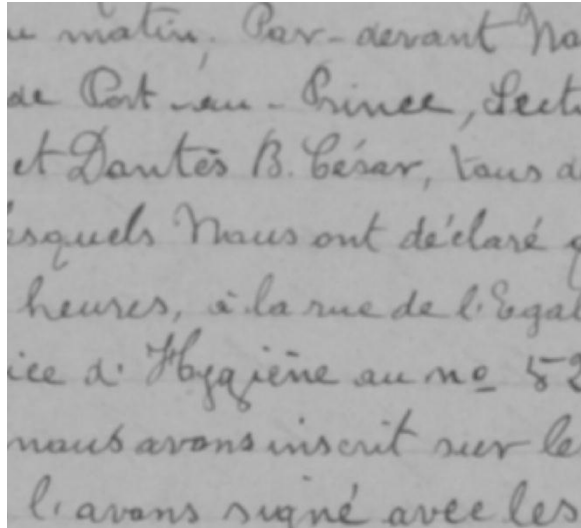 u matin, Par-devant No
de Port-au-Prince, Sect
et Dantès B. César, tous d
esquels Nous ont déclaré q
heures, à la rue de l'Egal
ice d'Hygiène au no 52
nous avons inscrit sur le
l'avons signé avec les